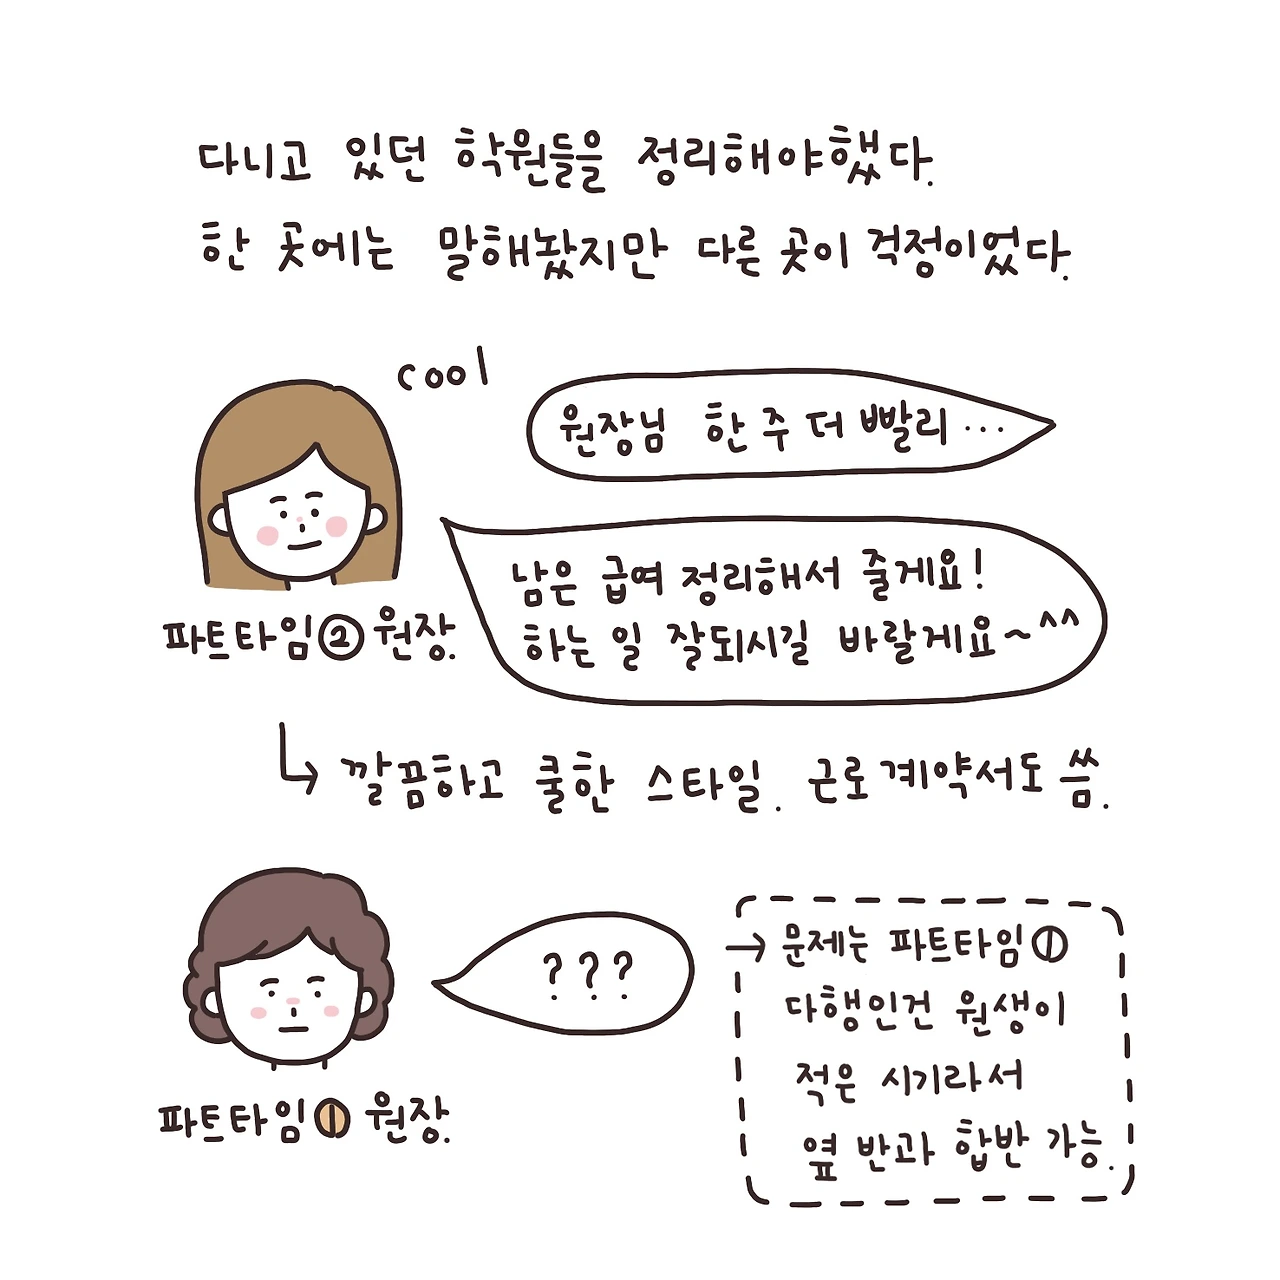 다니고 있던 학원들을 정리해야했다.
한 곳에는 말해놨지만 다른 곳이 걱정이었다.
cool
원장님 한 주 더 빨리...
남은 급여 정리해서 줄게요!
하는 일 잘되시길 바랄게요~^^
파트타임② 원장.
↳ 깔끔하고 쿨한 스타일. 근로계약서도 씀.
???
파트타임① 원장.
→ 문제는 파트타임①
다행인건 원생이
적은 시기라서
옆 반과 합반 가능.